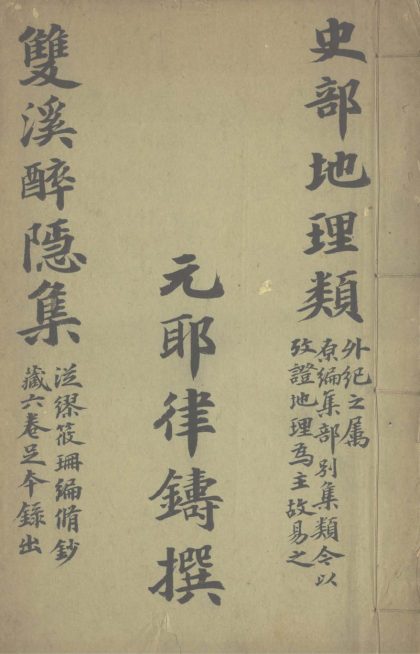 史部地理類
外紀之属
原編集部別集類今以
攷證地理爲主故易之
元耶律鑄撰
雙溪醉隱集
從繆筱珊編脩鈔
藏六卷足本録出